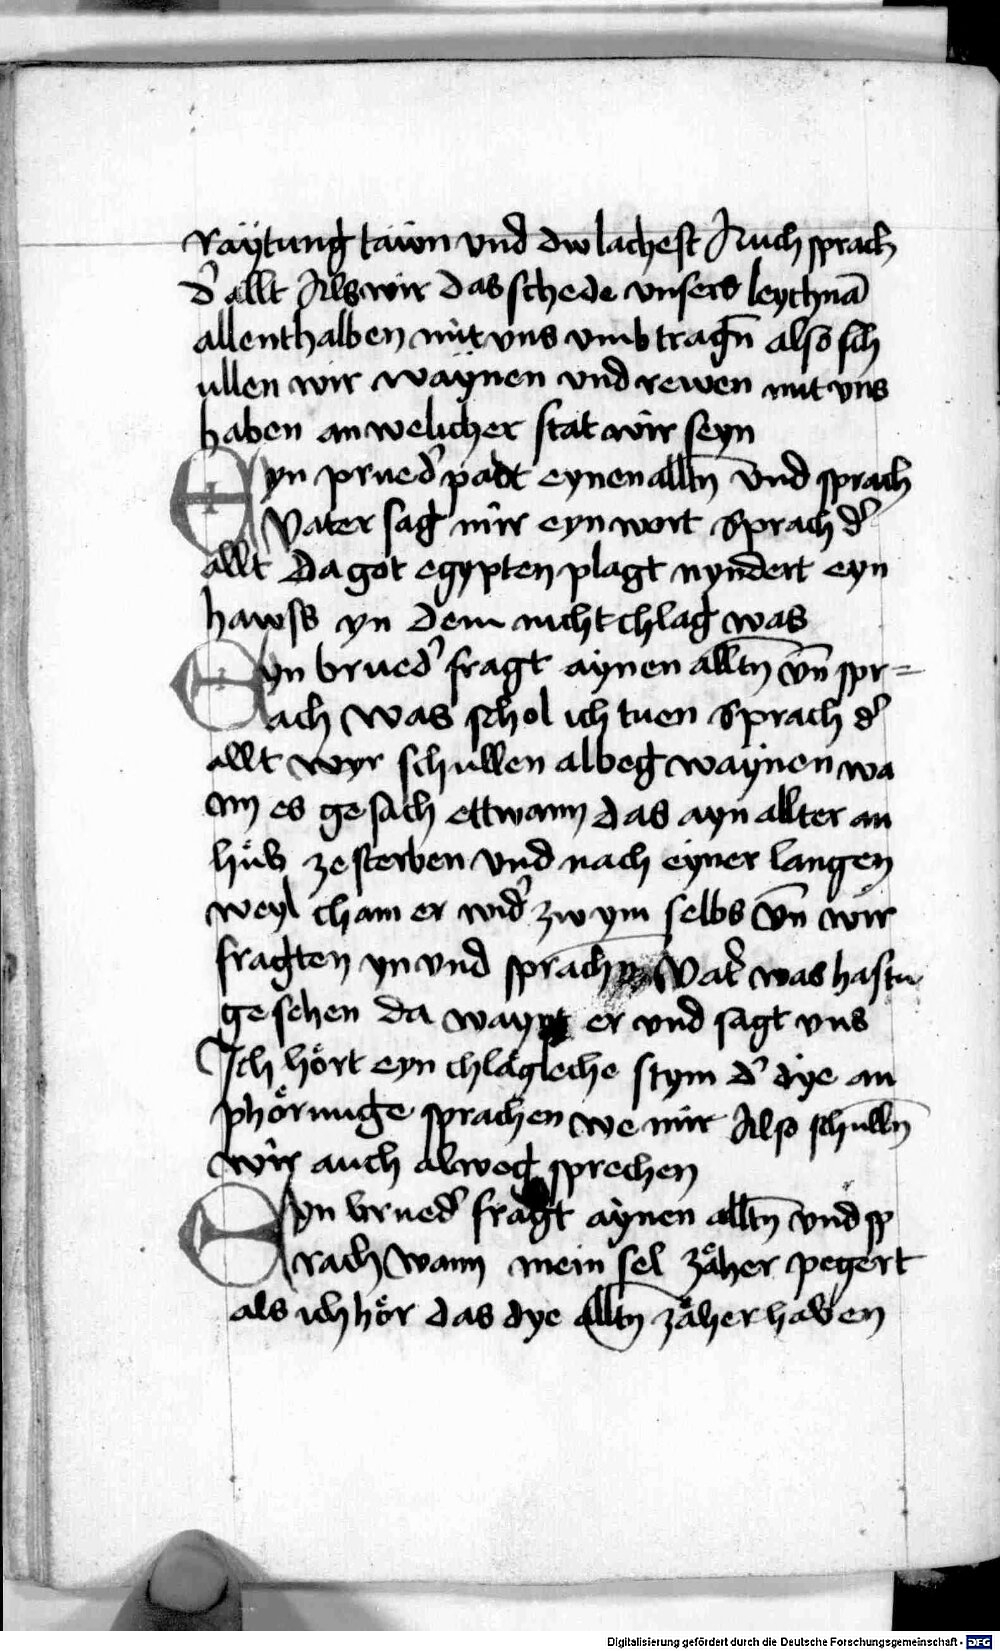 raÿtung tawn vnd dw lachest Auch sprach
d' allt Als wir das schede vnsers leychnā
allenthalben mit vns vmb tragn̄ also sch
ullen wir waÿnen vnd rewen mit vns
haben an welicher stat wir seyn
Eyn prued' padt eynen alltn̄ vnd sprach
Vater sag mir eyn wort Sprach d'
allt Da got egypten plagt nyndert eyn
hawss yn dem nicht chlag was
Eyn brued' fragt aÿnen alltn̄ vn̄ spr=
ach was schol ich tuen Sprach d'
allt wyr schullen albeg waÿnen wa
nn es gesach ettwann das ayn allter an
hůb ze sterben vnd nach eyner langen
weyl cham er wid' zw ym selbs vn̄ wir
fragten yn vnd sprachn̄ Vat' was hastu
gesehen da waynt er vnd sagt vns
Ich hört eyn chlägleche stym d' dÿe an
phörnuge sprachen we mir Also schulln̄
wir auch alweg sprechen
Eyn brued' fragt aÿnen alltn̄ vnd sp
rach Wann mein sel zäher pegert
als ich hör das dye alltn̄ zäher haben
Digitalisierung gefördert durch die Deutsche Forschungsgemeinschaft - DFG